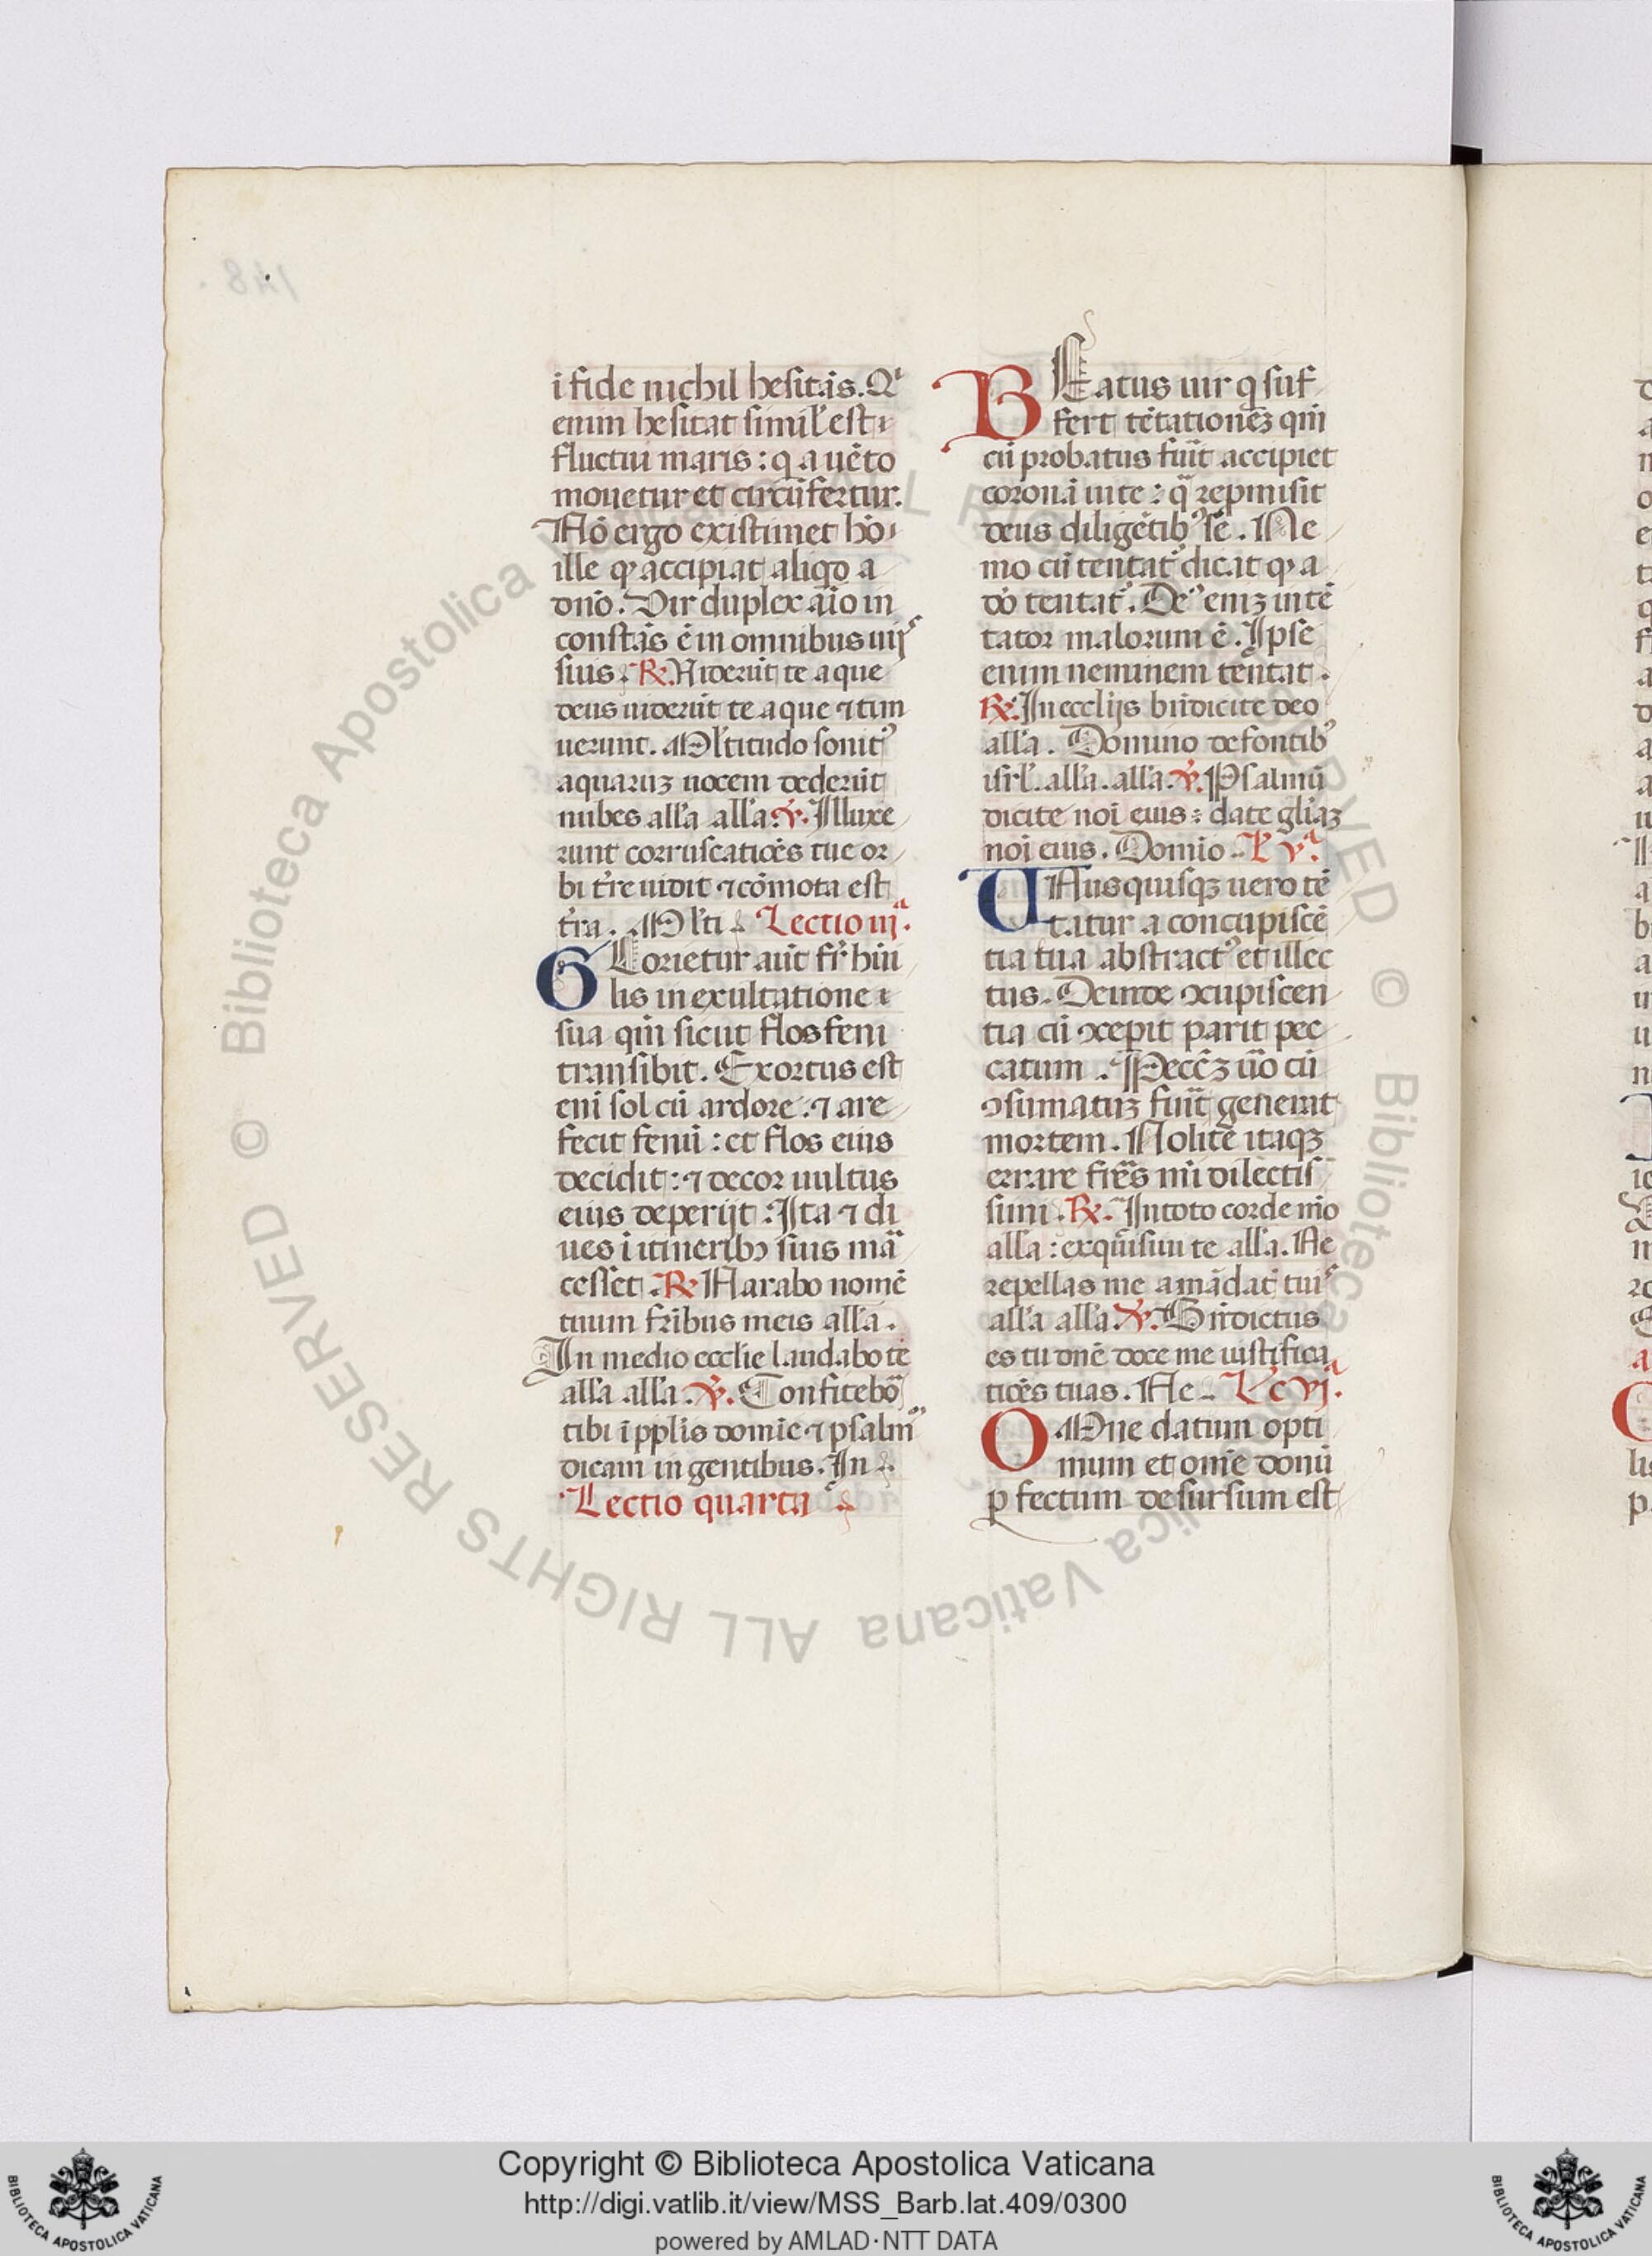 i fide nichil hesitãs. Qⁱ
enim hesitat simil' est
fluctui maris : q a uẽto
mouetur et circũfertur.
Nõ ergo existimet hõ
ille qɔ accipiat aliqo a
dnõ. Vir duplex aĩo in
constãs ẽ in omnibus uijˢ
suis. ℟. Uiderũt te aque
deus uiderũt te aque ⁊ tim
uerunt. Ml'titudo sonitꝰ
aquaruꝫ uocem dederũt
nubes all'a all'a. ℣. Illuxe
runt corruscatiões tue or
bi t're uidit ⁊ cõmota est
t'ra. Ml'ti Lectio iijᵃ.
GLorietur aut̃ fr̃ hũi
lis in exultatione
sua qm̃ sicut flos feni
transibit. Exortus est
eni sol cũ ardore : ⁊ are
fecit fenũ : et flos eius
decidit : ⁊ decor uultus
eius deperijt : Ita ⁊ di
ues ĩ itineribꝰ suis mã
cesset. ℟. Narabo nomẽ
tuum fr̃ibus meis all'a.
In medio ecclie laudabo te
all'a all'a. ℣. Confitebõ
tibi ĩ pplis domie ⁊ psalmꝰ
dicam in gentibus. In
Lectio quarta
BEatus uir q suf
fert tẽtationeꝫ qm̃
cũ probatus fuĩt accipiet
coronã uite : q̃ repmisit
deus diligẽtibꝰ se. Ne
mo cũ tentat' dicat qɔ a
dõ tentat'. Deꝰ eniꝫ intẽ
tator malorum ẽ. Ipse
enim neminem tentat.
℟. In ecclijs bñdicite deo
all'a. Domino de fontibꝰ
isrl'. all'a. all'a. ℣. Psalmũ
dicite noĩ eius : date gl'iaꝫ
noĩ eius. Domio. L' vᵃ.
UNusquisqꝫ uero tẽ
tatur a concupiscẽ
tia sua abstractꝰ et illec
tus. Deinde ɔcupiscen
tia cũ ɔcepit parit pec
catum. Peccẽꝫ uõ cũ
ɔsumatuꝫ fuĩt generat
mortem. Nolite itaqꝫ
errare fr̃es mi dilectis
simi. ℟. In toto corde mõ
all'a : exquisiui te all'a. Ne
repellas me a mãdat' tuiˢ
all'a all'a. ℣. Bñdictus
es tu dnẽ doce me iustifica
tiões tuas. Ne Lc̃ vjᵃ.
OMne datum opti
mum et om̃e donũ
pfectum desursum est
148
© Biblioteca Apostolica Vaticana ALL RIGHTS RESERVED
© Biblioteca Apostolica Vaticana ALL RIGHTS RESERVED
Copyright © Biblioteca Apostolica Vaticana
http://digi.vatlib.it/view/MSS_Barb.lat.409/0300
powered by AMLAD·NTT DATA
BIBLIOTECA APOSTOLICA VATICANA
BIBLIOTECA APOSTOLICA VATICANA